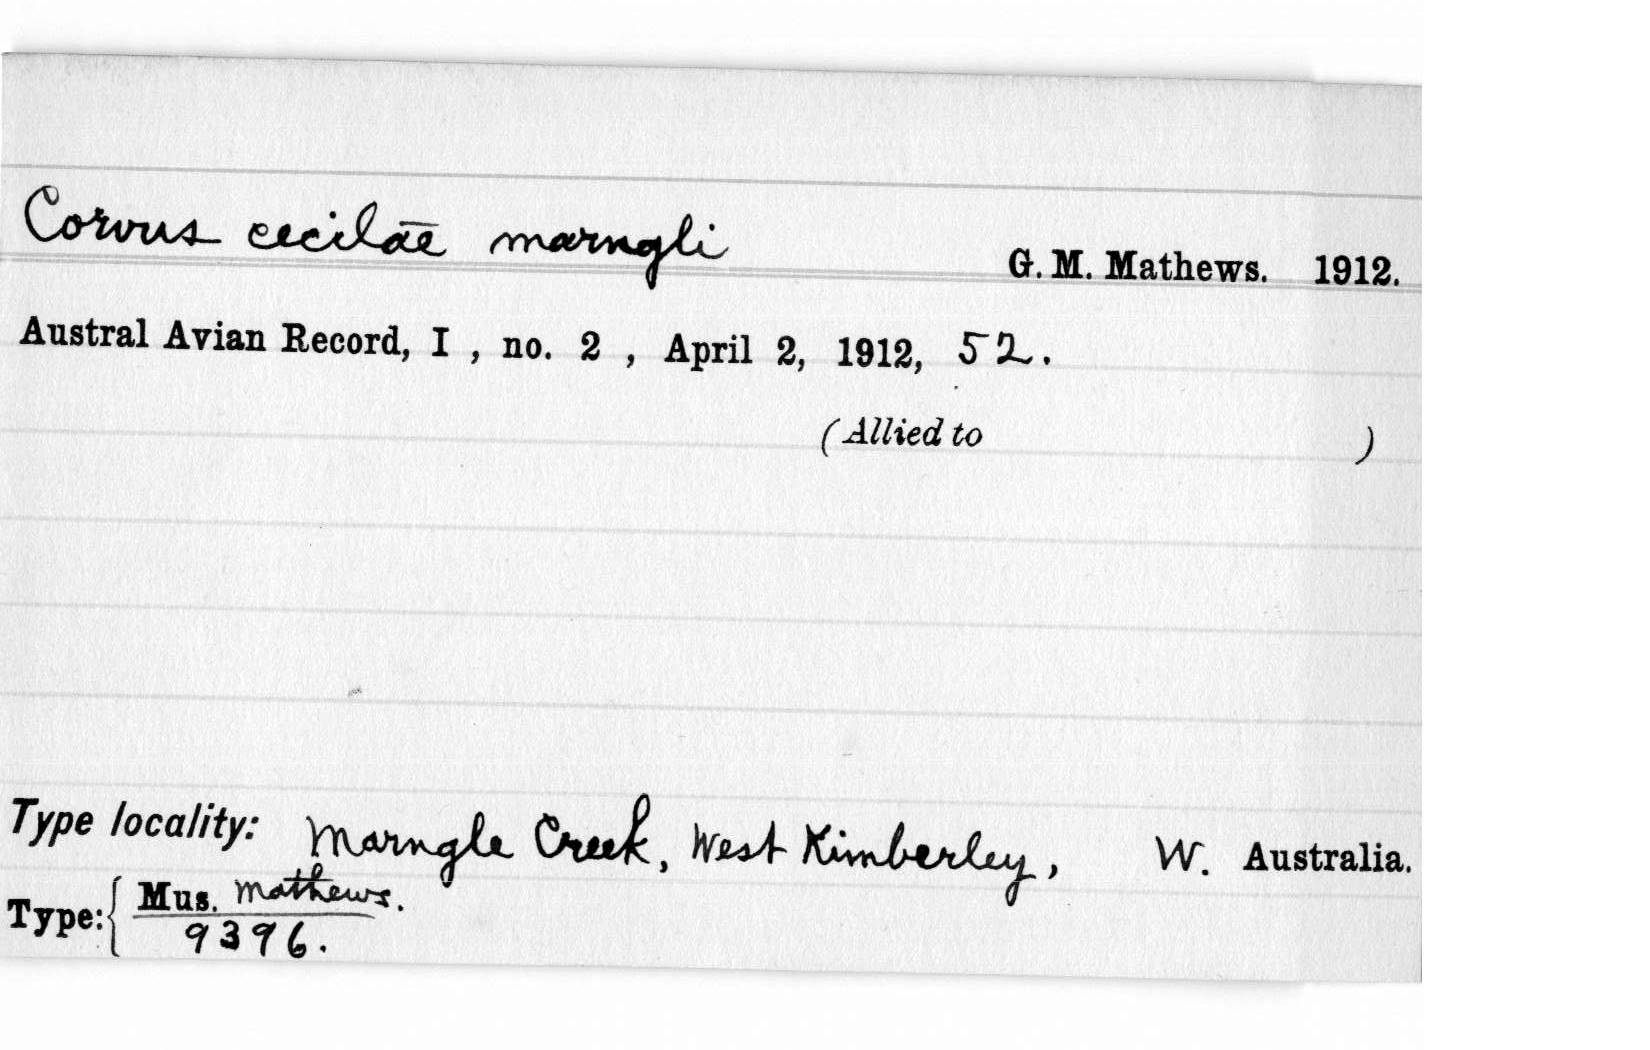 Corvus cecilae marngli G. M. Mathews. 1912.
Austral Avian Record, I , no. 2 , April 2, 1912, 52.
(Allied to )
Type locality: Marngle Creek, West Kimberley, W. Australia.
Type: { Mus. Mathews.
9396.